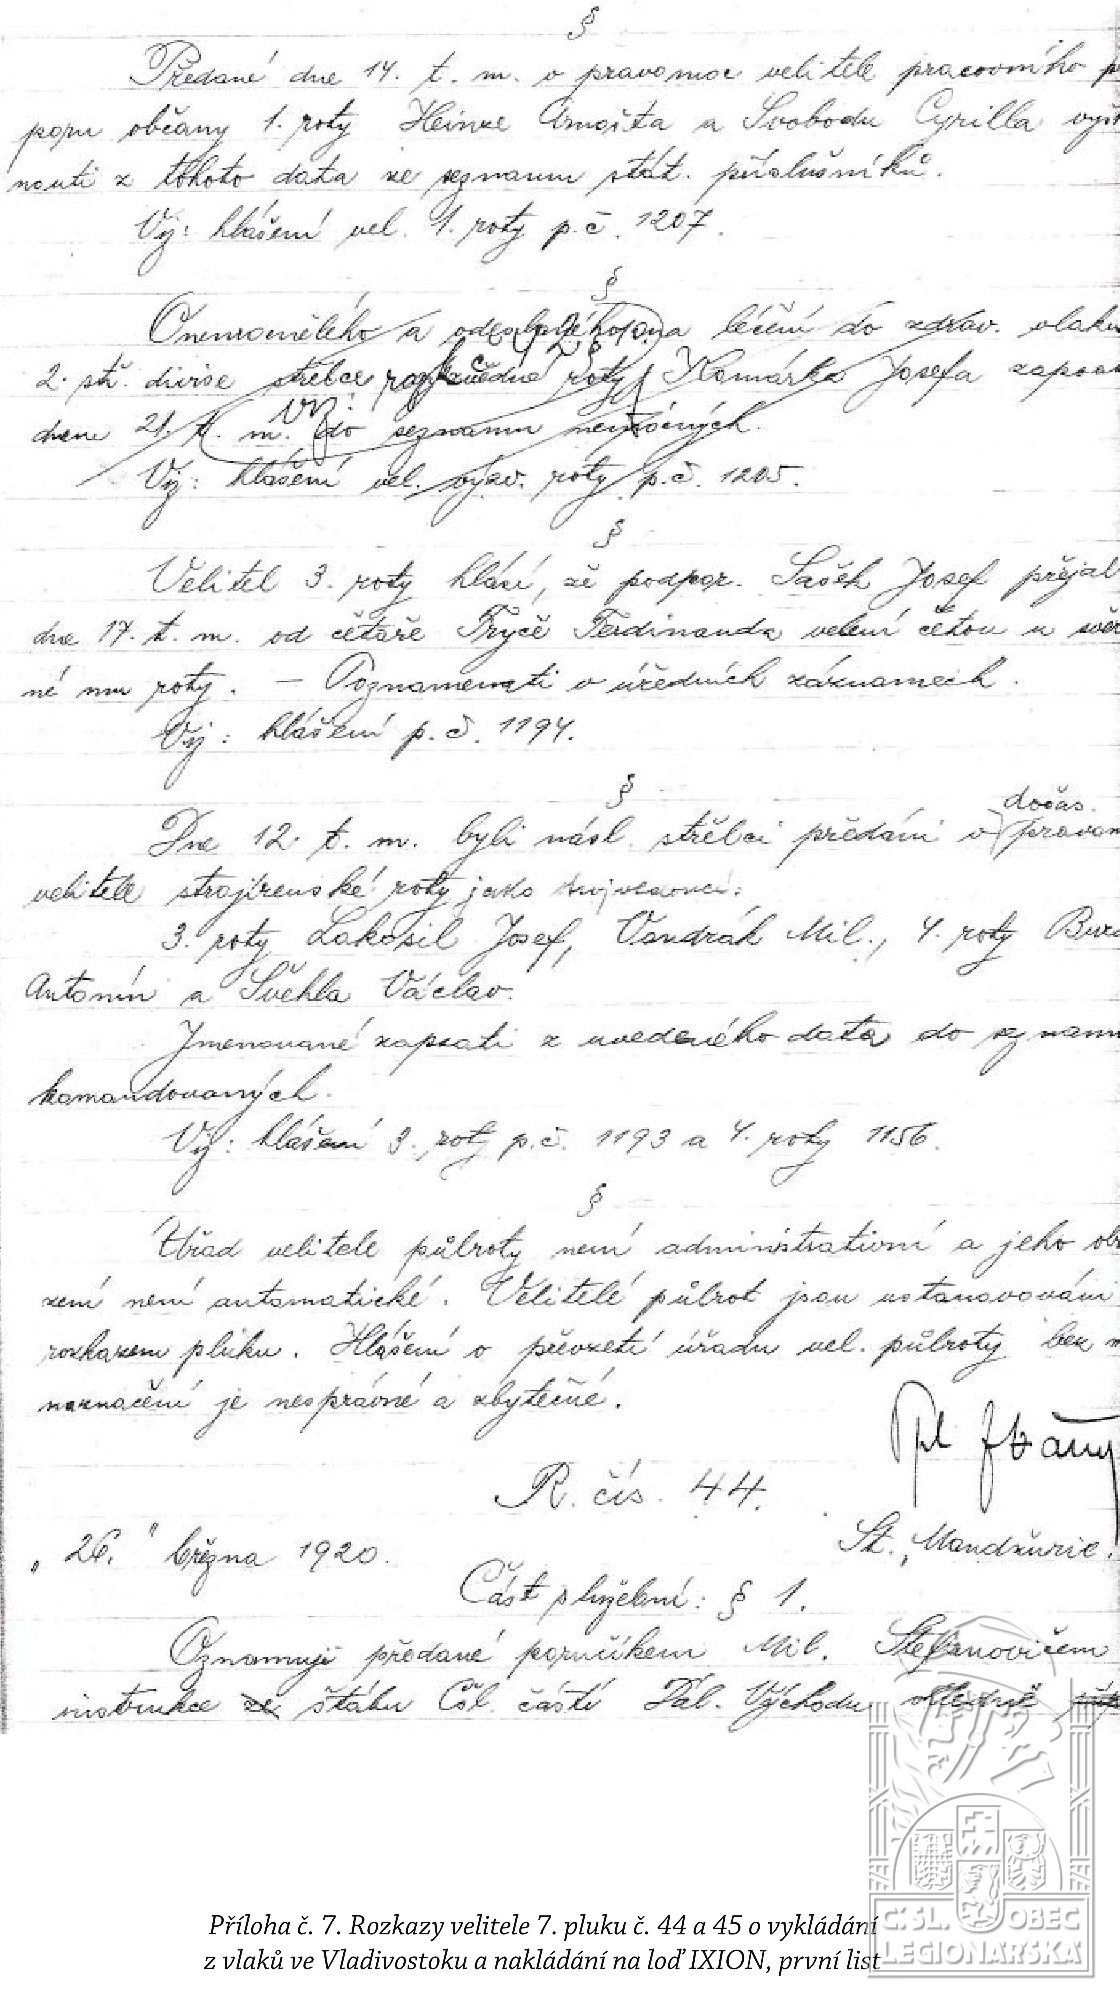 §
Předané dne 14. t. m. v pravomoc velitele pracovního
poru občany 1. roty Heinze Arnošta a Svobodu Cyrilla
nouti z tohoto data ze seznamu stát. příslušníků.
Viz: hlášení vel. 1. roty p.č. 1207.
§
Onemocnělého a na léčení do zdrav. vlaku
2. stř. divise střelce roty Komárka Josefa
dnem 21. t. m. do seznamu nemocných.
viz:
Viz: hlášení vel. vyzv. roty p.č. 1205.
§
Velitel 3. roty hlásí, že podpor. Sašek Josef přejal
dne 17. t. m. od četaře Frýče Ferdinanda velení četou u
né mu roty. – Poznamenati v úředních záznamech.
Viz: hlášení p.č. 1194.
§
dočas.
Dne 12. t. m. byli násl. střelci předáni v
velitele strojírenské roty jako strojvedoucí:
3. roty Lakosil Josef, Vondrák Mil., 4. roty
Antonín a Švehla Václav.
Jmenované zapsati z uvedeného data do seznamu
komandovaných.
Viz: hlášení 3. roty p.č. 1193 a 4. roty 1156.
§
Úřad velitele půlroty není administrativní a jeho
zení není automatické. Velitelé půlrot jsou
rozkazem pluku. Hlášení o převzetí úřadu vel. půlroty bez
naznačení je nesprávné a zbytečné.
R. čís. 44.
„26.“ března 1920. St. Mandžurie.
Část služební: § 1.
Oznamuji předané poručíkem Mil. Štefanovičem
instrukce ze štábu Čsl. části Dál. Východu
Č. SL. OBEC
LEGIONÁŘSKÁ
Příloha č. 7. Rozkazy velitele 7. pluku č. 44 a 45 o vykládání
z vlaků ve Vladivostoku a nakládání na loď IXION, první list